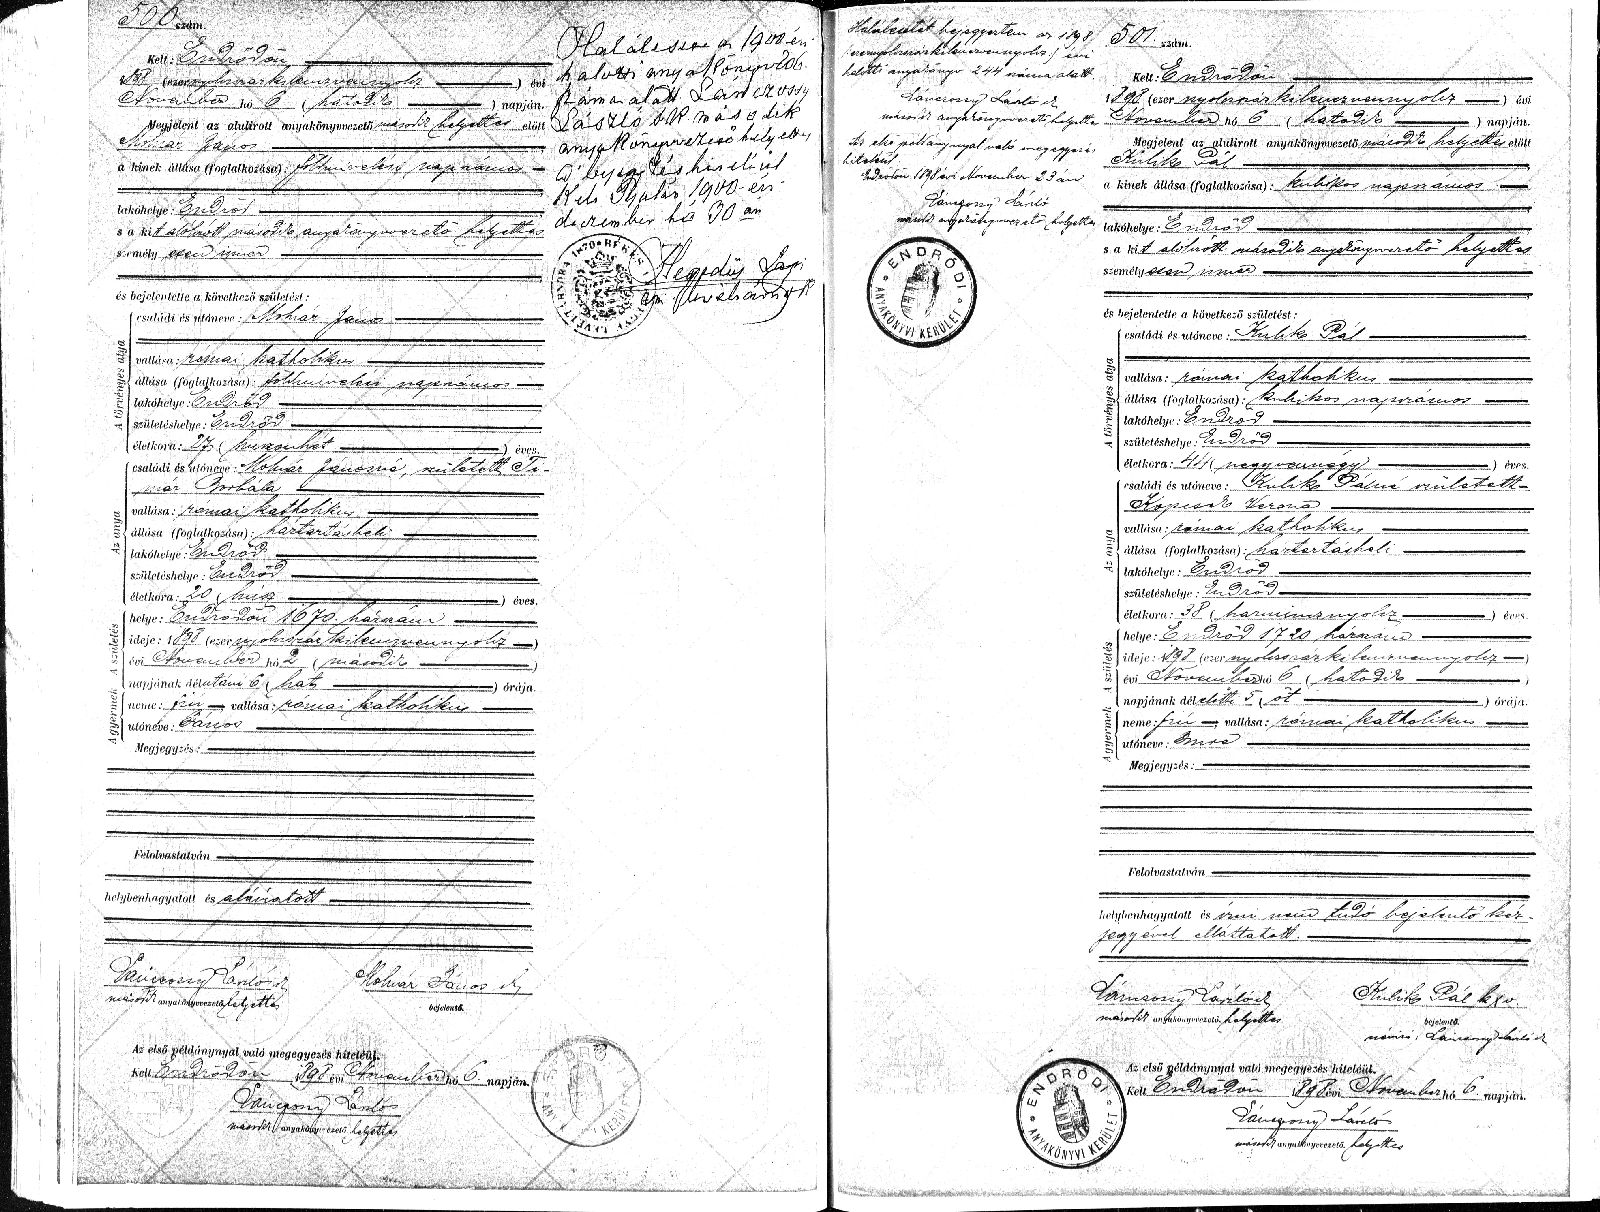 500 szám.
Kelt: Endrődön
1898 (ezernyolcszázkilenczvennyolcz) évi
November hó 6 (hatodik) napján.
Megjelent az alulirott anyakönyvvezető második helyettes előtt
Molnár János
a kinek állása (foglalkozása): földmivelési napszámos
lakóhelye: Endrőd
s a kit alólirott második anyakönyvvezető helyettes
személyesen ismer
és bejelentette a következő születést:
A törvényes atya
családi és utóneve: Molnár János
vallása: római katholikus
állása (foglalkozása): földmivelési napszámos
lakóhelye: Endrőd
születéshelye: Endrőd
életkora: 27 (huszonhét) éves.
Az anya
családi és utóneve: Molnár Jánosné, született Ti-
már Borbála
vallása: római katholikus
állása (foglalkozása): háztartásbeli
lakóhelye: Endrőd
születéshelye: Endrőd
életkora: 20 (húsz) éves.
A születés
helye: Endrődön 1670. házszám
ideje: 1898 (ezernyolcszázkilenczvennyolcz)
évi November hó 2 (második)
napjának délutáni 6 (hat) órája.
A gyermek
neme: fiu vallása: római katholikus
utóneve: János
Megjegyzés:
Felolvastatván
helybenhagyatott és aláiratott
Lánczossy László sk
második anyakönyvvezető helyettes
Molnár János sk
bejelentő.
Az első példánynyal való megegyezés hiteléül.
Kelt Endrődön 1898 évi November hó 6 napján.
Lánczossy László
második anyakönyvvezető helyettes
Halálesete az 1900 évi
halotti anyakönyvből
szám alatt Lánczossy
László SK második
anyakönyvvezető helyettes
bejegyzés hiteléül
Kelt Gyulán, 1900 évi
december hó 30 án
Hegedüs
Halálesetét bejegyeztem az 1898
(ezernyolcszázkilenczvennyolcz) évi
halotti anyakönyv 244 száma alatt.
Lánczossy László sk
második anyakönyvvezető helyettes
Az első példánynyal való megegyezés
hiteléül
Endrődön 1898 évi November 23 án
Lánczossy László
második anyakönyvvezető helyettes
ENDRŐDI
ANYAKÖNYVI KERÜLET
501 szám.
Kelt: Endrődön
1898 (ezer nyolcszázkilenczvennyolcz) évi
November hó 6 (hatodik) napján.
Megjelent az alulirott anyakönyvvezető második helyettes előtt
Kulik Pál
a kinek állása (foglalkozása): kubikos napszámos
lakóhelye: Endrőd
s a kit alólirott második anyakönyvvezető helyettes
személyesen ismer
és bejelentette a következő születést:
A törvényes atya
családi és utóneve: Kulik Pál
vallása: római katholikus
állása (foglalkozása): kubikos napszámos
lakóhelye: Endrőd
születéshelye: Endrőd
életkora: 44 (negyvennégy) éves.
Az anya
családi és utóneve: Kulik Pálné született
Kopcsik Verona
vallása: római katholikus
állása (foglalkozása): háztartásbeli
lakóhelye: Endrőd
születéshelye: Endrőd
életkora: 38 (harmincznyolcz) éves.
A születés
helye: Endrőd 1720. házszám
ideje: 1898 (ezer nyolcszázkilenczvennyolcz)
évi November hó 6 (hatodik)
napjának délelőtti 5 (öt) órája.
A gyermek
neme: fiu vallása: római katholikus
utóneve: Imre
Megjegyzés:
Felolvastatván
helybenhagyatott és irni nem tudó bejelentő kéz-
jegyével elláttatott.
Lánczossy László sk
második anyakönyvvezető helyettes
Kulik Pál kxv
bejelentő.
névíró: Lánczossy László sk
Az első példánynyal való megegyezés hiteléül.
Kelt Endrődön 1898 évi November hó 6 napján.
Lánczossy László
második anyakönyvvezető helyettes
ENDRŐDI
ANYAKÖNYVI KERÜLET